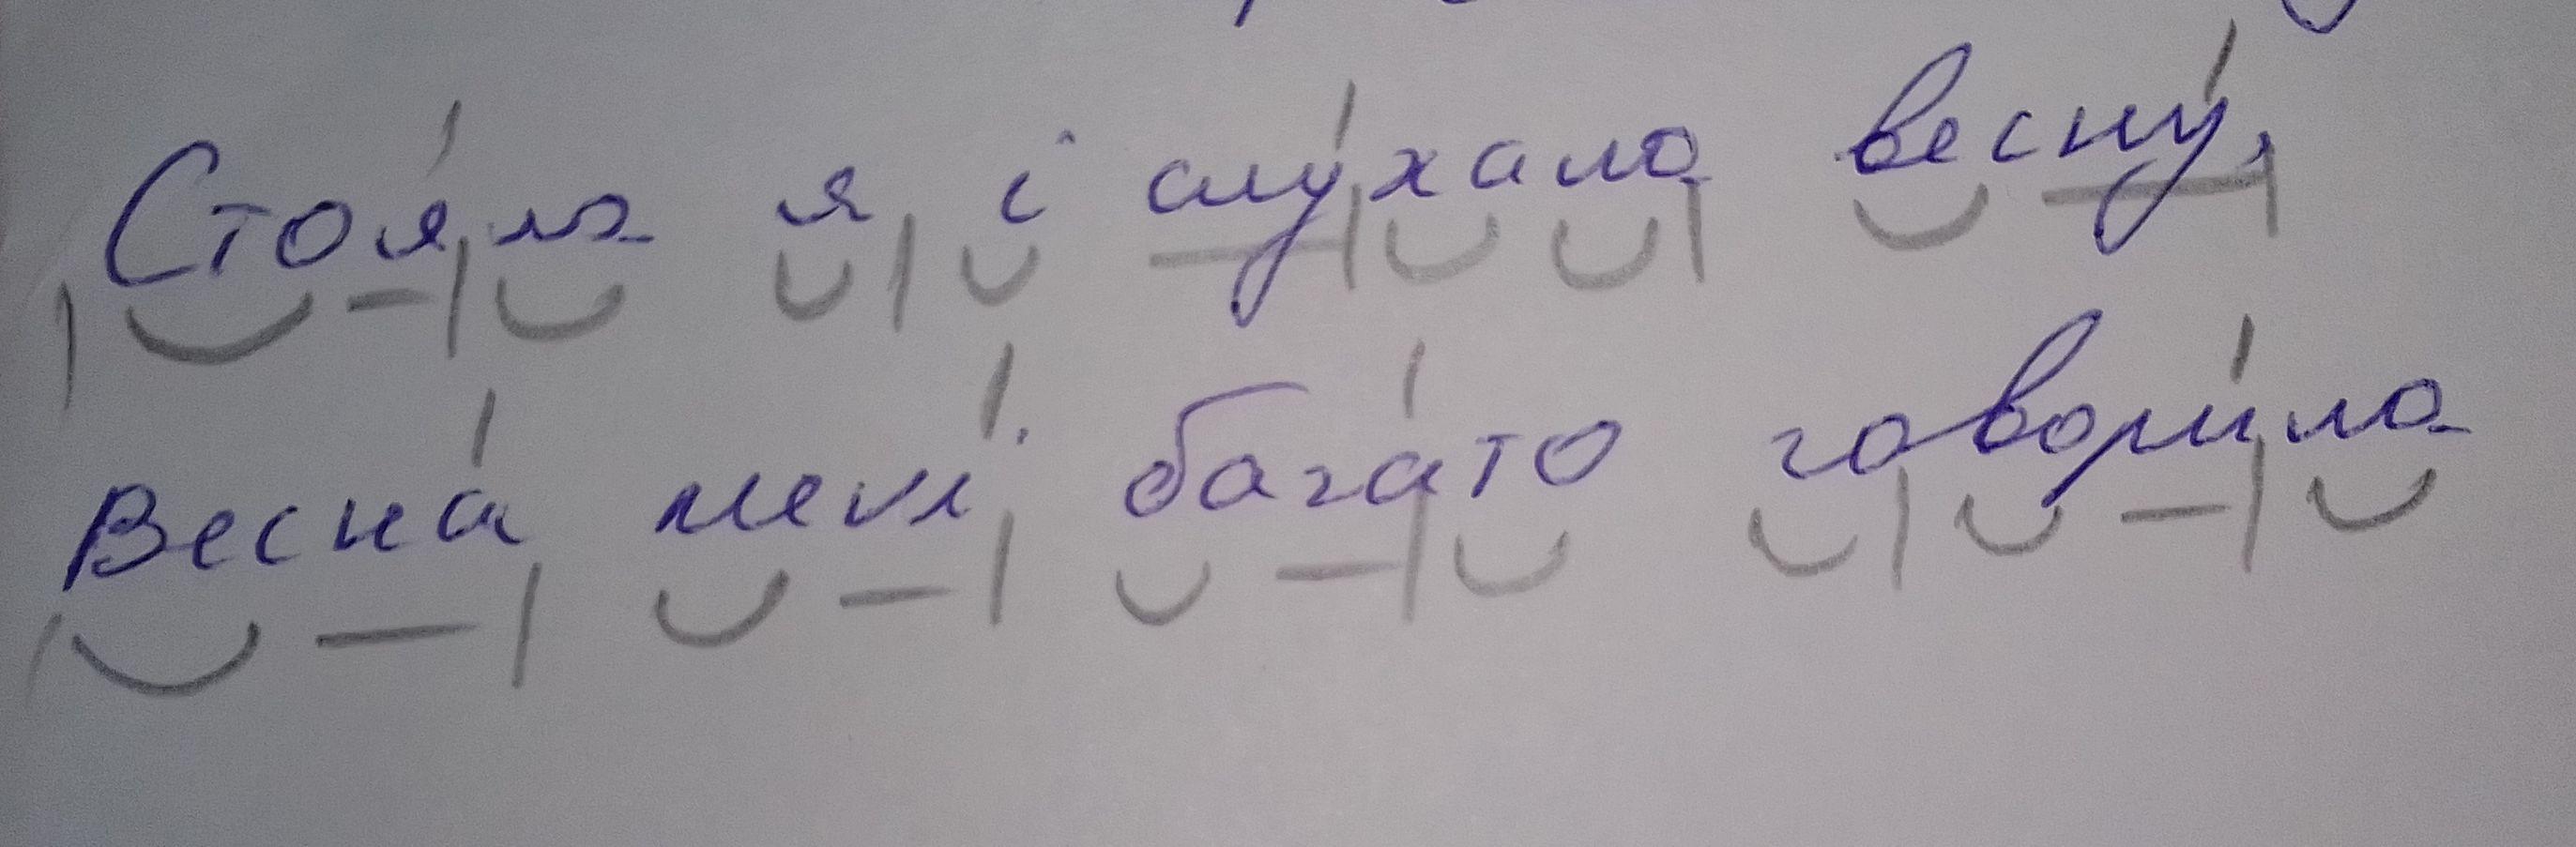 Стоя́ла я і слу́хала весну́,
Весна́ мені́ бага́то говори́ла